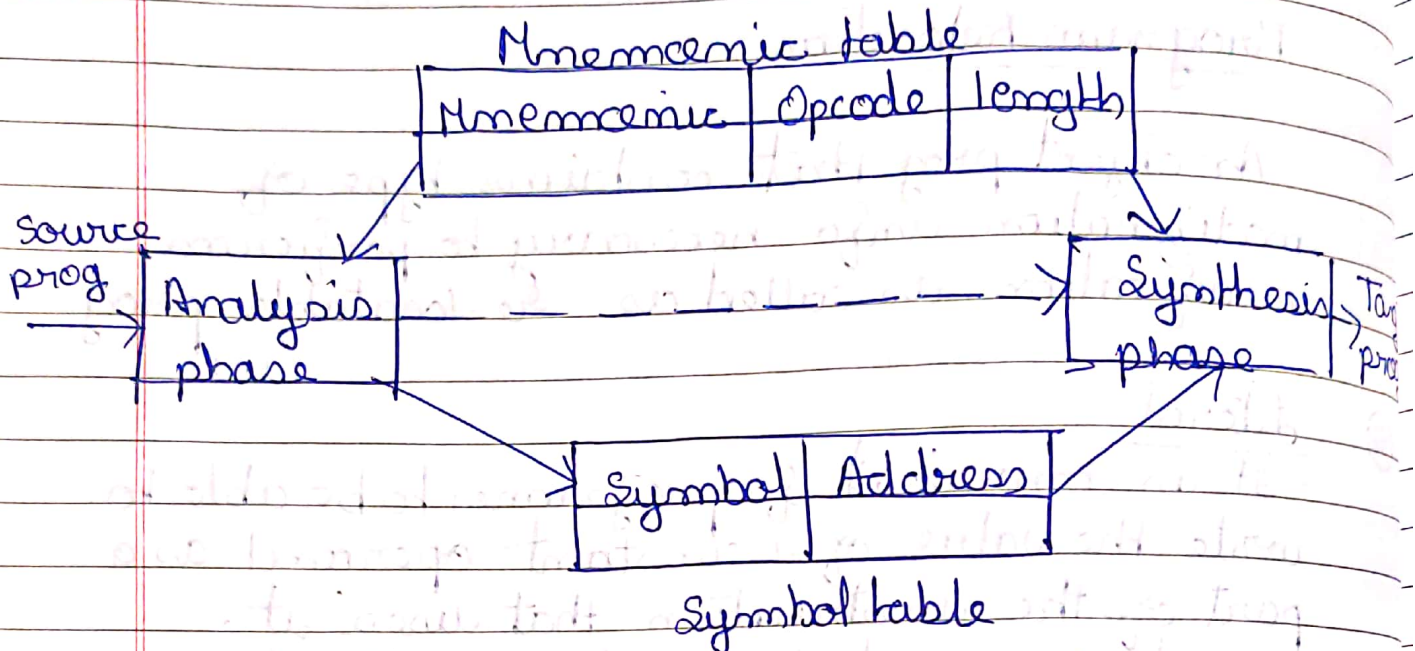 Mnemcenic table
Mnemcenic Opcode length
source
prog
Analysis
phase
Synthesis
phase
Symbol Address
Symbol table